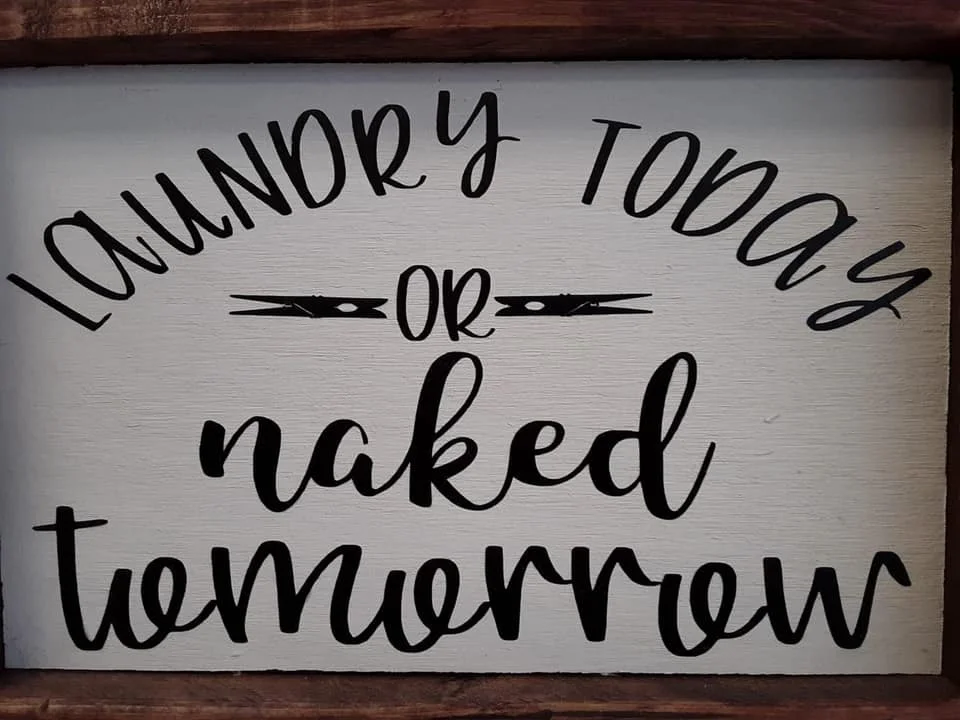 LaUNDRY TODay
OR
naked
tomorrow